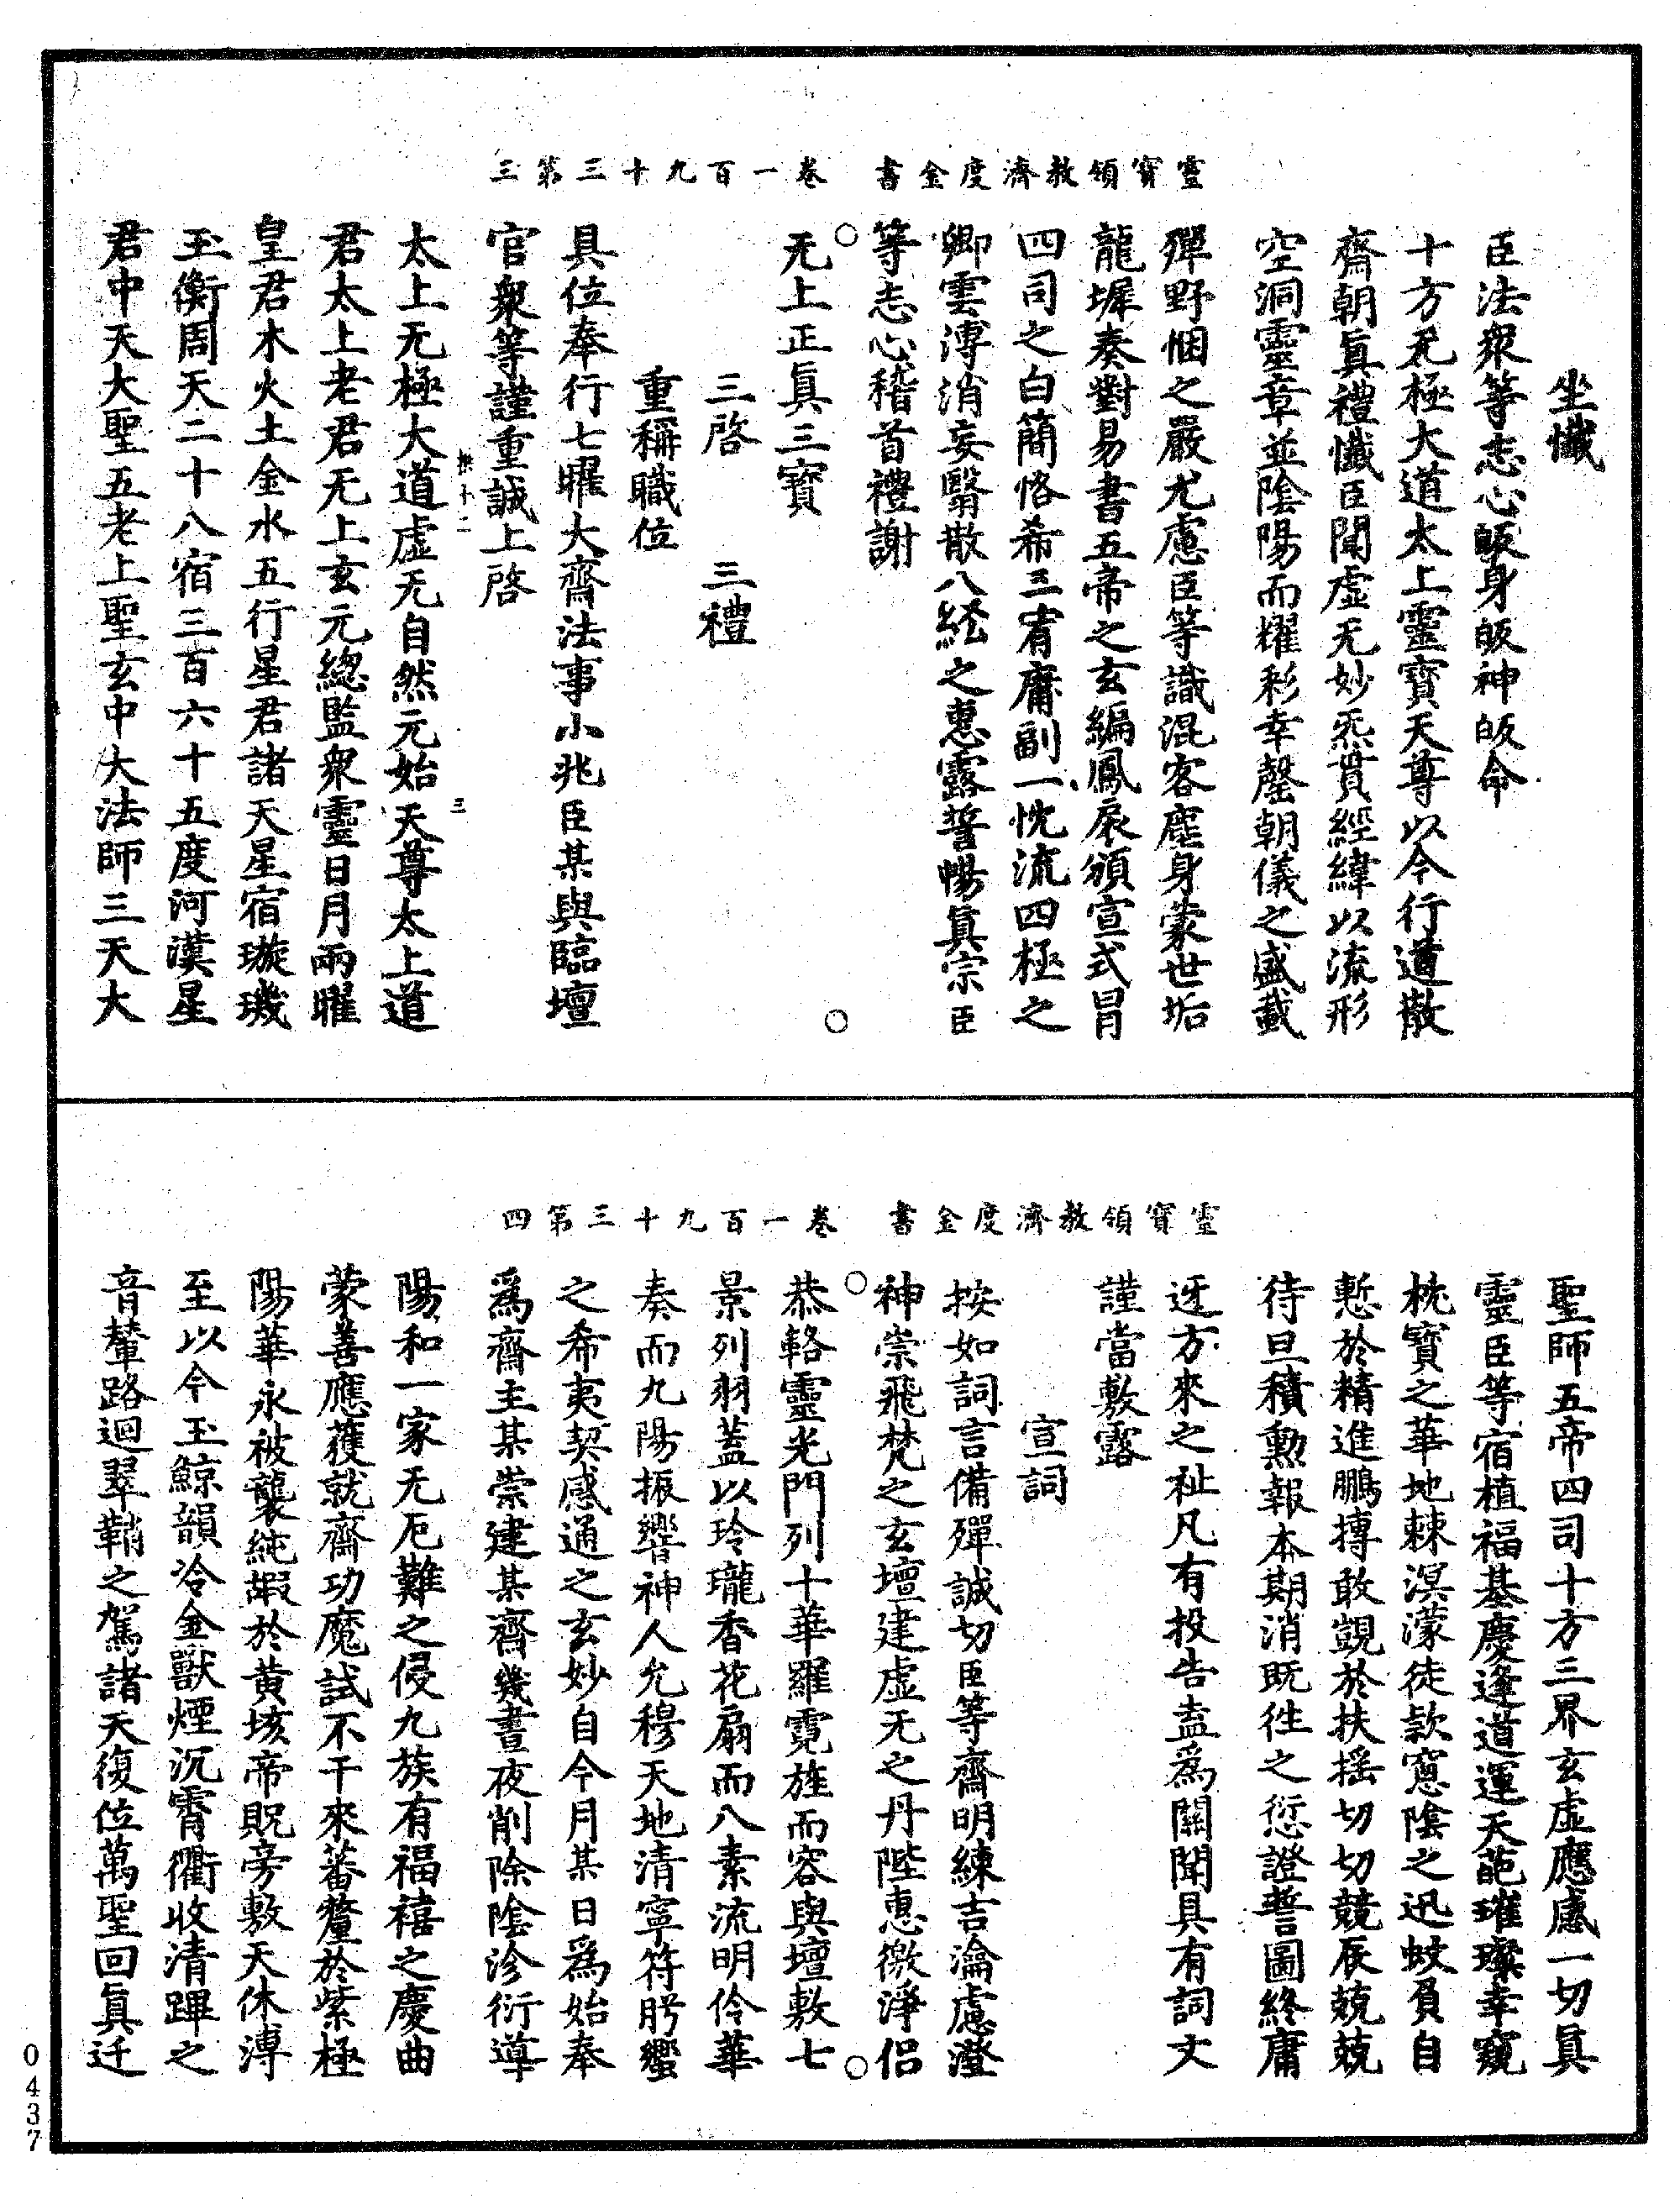 靈寶領教濟度金書 卷一百九十三第三
坐懺
臣法衆等志心皈身皈神皈命
十方无極大道太上靈寶天尊以今行道散
齋朝眞禮懺臣聞虛无妙炁貫經緯以流形
空洞靈章並陰陽而耀彩幸罄朝儀之盛載
殫野悃之嚴尤慮臣等識混客塵身蒙世垢
龍墀奏對易書五帝之玄編鳳扆頒宣式冒
四司之白簡恪希三宥庸副一忱流四極之
卿雲溥消妄翳散八絃之惠露誓暢眞宗臣
等志心稽首禮謝
无上正眞三寶
三啓 三禮
重稱職位
具位奉行七曜大齋法事小兆臣某與臨壇
官衆等謹重誠上啓
太上无極大道虛无自然元始天尊太上道
君太上老君无上玄元總監衆靈日月兩曜
皇君木火土金水五行星君諸天星宿璇璣
玉衡周天二十八宿三百六十五度河漢星
君中天大聖五老上聖玄中大法師三天大
靈寶領教濟度金書 卷一百九十三第四
聖師五帝四司十方三界玄虛應感一切眞
靈臣等宿植福基慶逢道運天葩璀璨幸窺
枕寶之華地棘溟濛徒款窻陰之迅蚊負自
慙於精進鵬摶敢覬於扶搖切切競辰兢兢
待旦積勳報本期消既徃之愆證誓圖終庸
迓方來之祉凡有投告盍爲關聞具有詞文
謹當敷露
宣詞
按如詞言備殫誠切臣等齋明練吉瀹慮澄
神崇飛梵之玄壇建虛无之丹陛惠徼淨侶
恭輅靈光門列十華羅霓旌而容與壇敷七
景列羽蓋以玲瓏香花扇而八素流明伶華
奏而九陽振響神人允穆天地清寧符肸蠁
之希夷契感通之玄妙自今月某日爲始奉
爲齋主某崇建某齋幾晝夜削除陰沴衍導
陽和一家无厄難之侵九族有福禧之慶曲
蒙善應獲就齋功魔試不干來蕃釐於紫極
陽華永被襲純嘏於黃垓帝貺旁敷天休溥
至以今玉鯨韻冷金獸煙沉霄衢收清蹕之
音輦路迴翠鞘之駕諸天復位萬聖回眞迁
0437